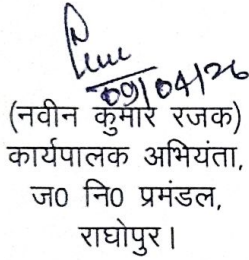 09/04/26
(नवीन कुमार रजक)
कार्यपालक अभियंता,
ज0 नि0 प्रमंडल,
राघोपुर।